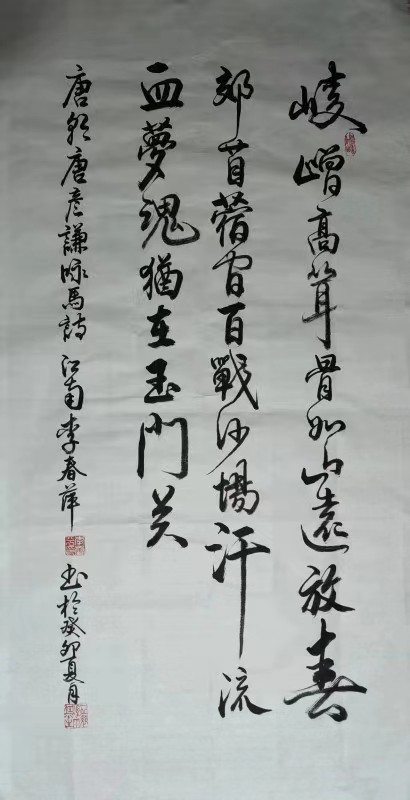 崚嶒高耸骨如山遠放春
郊苜蓿间百戰沙場汗流
血夢魂猶在玉门关
唐朝唐彦謙咏馬詩 江南李春萍 书於癸卯夏月